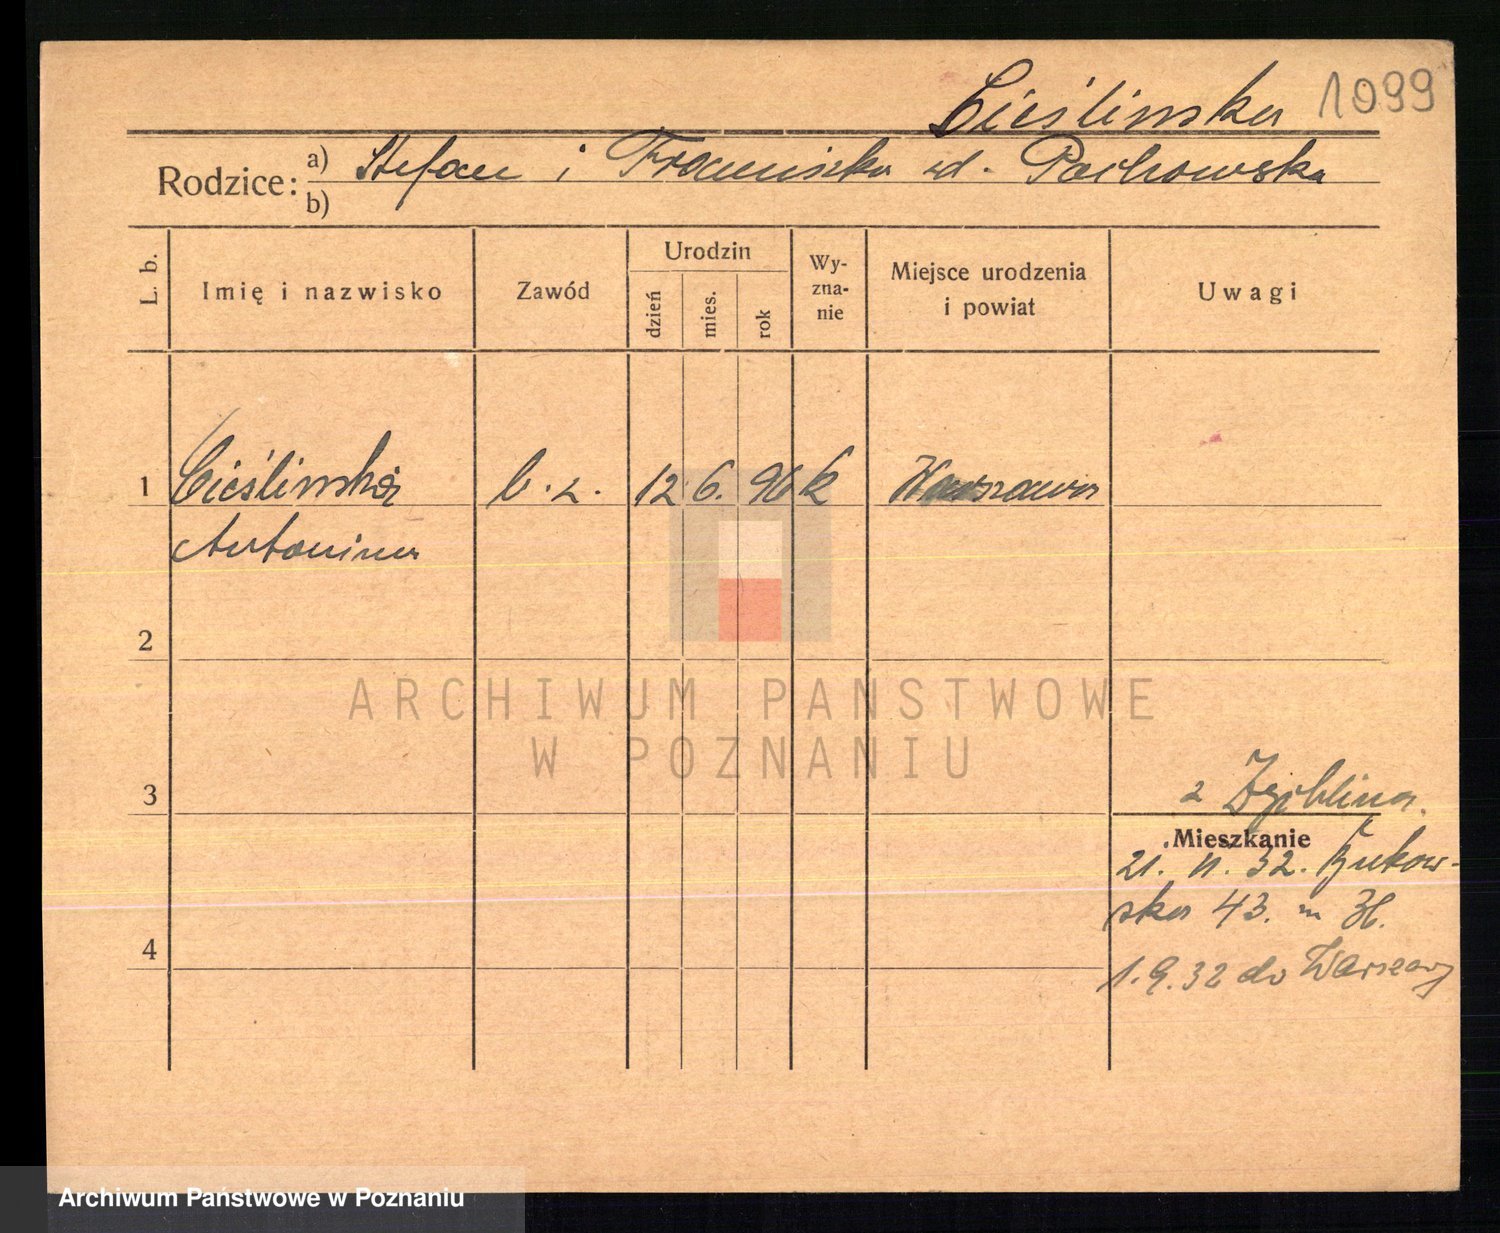 Cieślinska 1099
Rodzice: a) Stefan i Franciszka zd. Pachowska
b)
L. b. Imię i nazwisko Zawód Urodzin dzień mies. rok Wy-zna-nie Miejsce urodzenia i powiat Uwagi
1 Cieślinska b. z. 12 6. 96 k Warszawa
Antonina
2
ARCHIWUM PAŃSTWOWE
W POZNANIU
3
z
Mieszkanie
21. 32. Bukow-
ska 43. m
4
1.9.32 do Warszawy
Archiwum Państwowe w Poznaniu